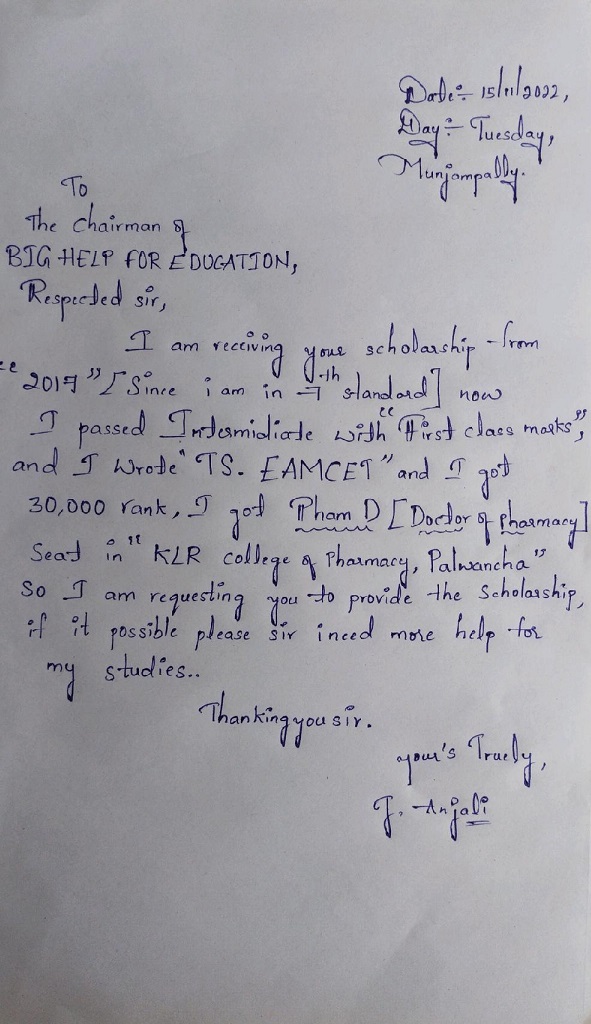 Date:- 15/11/2022,
Day:- Tuesday,
Munjampally.
To
The Chairman of
BIG HELP FOR EDUCATION,
Respected sir,
I am receiving your scholarship from
"2017" [Since i am in 7th standard] now
I passed Intermidiate with "First class marks",
and I Wrote "TS. EAMCET" and I got
30,000 rank, I got Pham D [Doctor of pharmacy]
Seat in "KLR college of Pharmacy, Palwancha"
So I am requesting you to provide the Scholarship,
if it possible please sir ineed more help for
my studies..
Thankingyou sir.
your's Truely,
J. Anjali